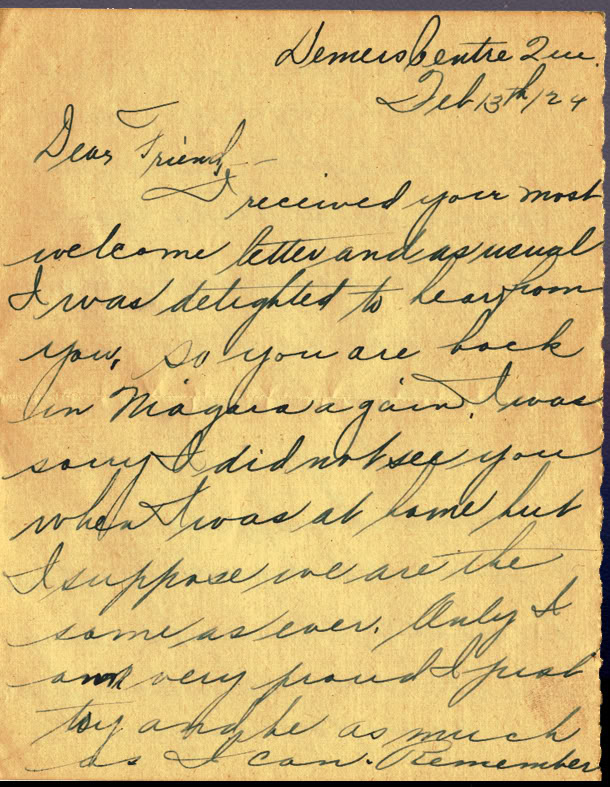 Demers Centre Que.
Feb 13th/24
Dear Friend, —
I received your most
welcome letter and as usual
I was delighted to hear from
you, so you are back
in Niagara again. I was
sorry I did not see you
when I was at home but
I suppose we are the
same as ever. Only I
am very proud I just
try and be as much
as I can. Remember